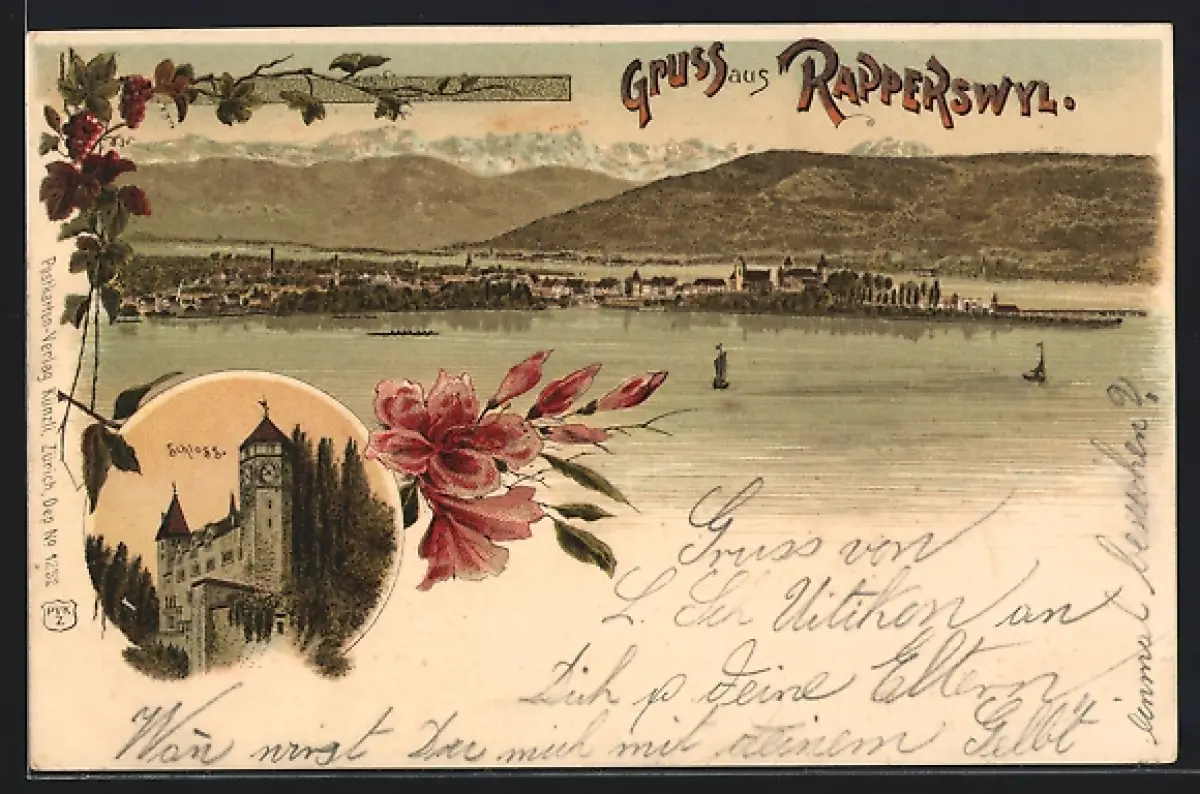 Gruss aus Rapperswyl.
Schloss.
Postkarten-Verlag Künzli, Zürich, Dep No 1232
Gruss von
L. Uitikon an
Dich & deine Eltern
Wan wirst Du mich mit deinem
einmal besuchen?